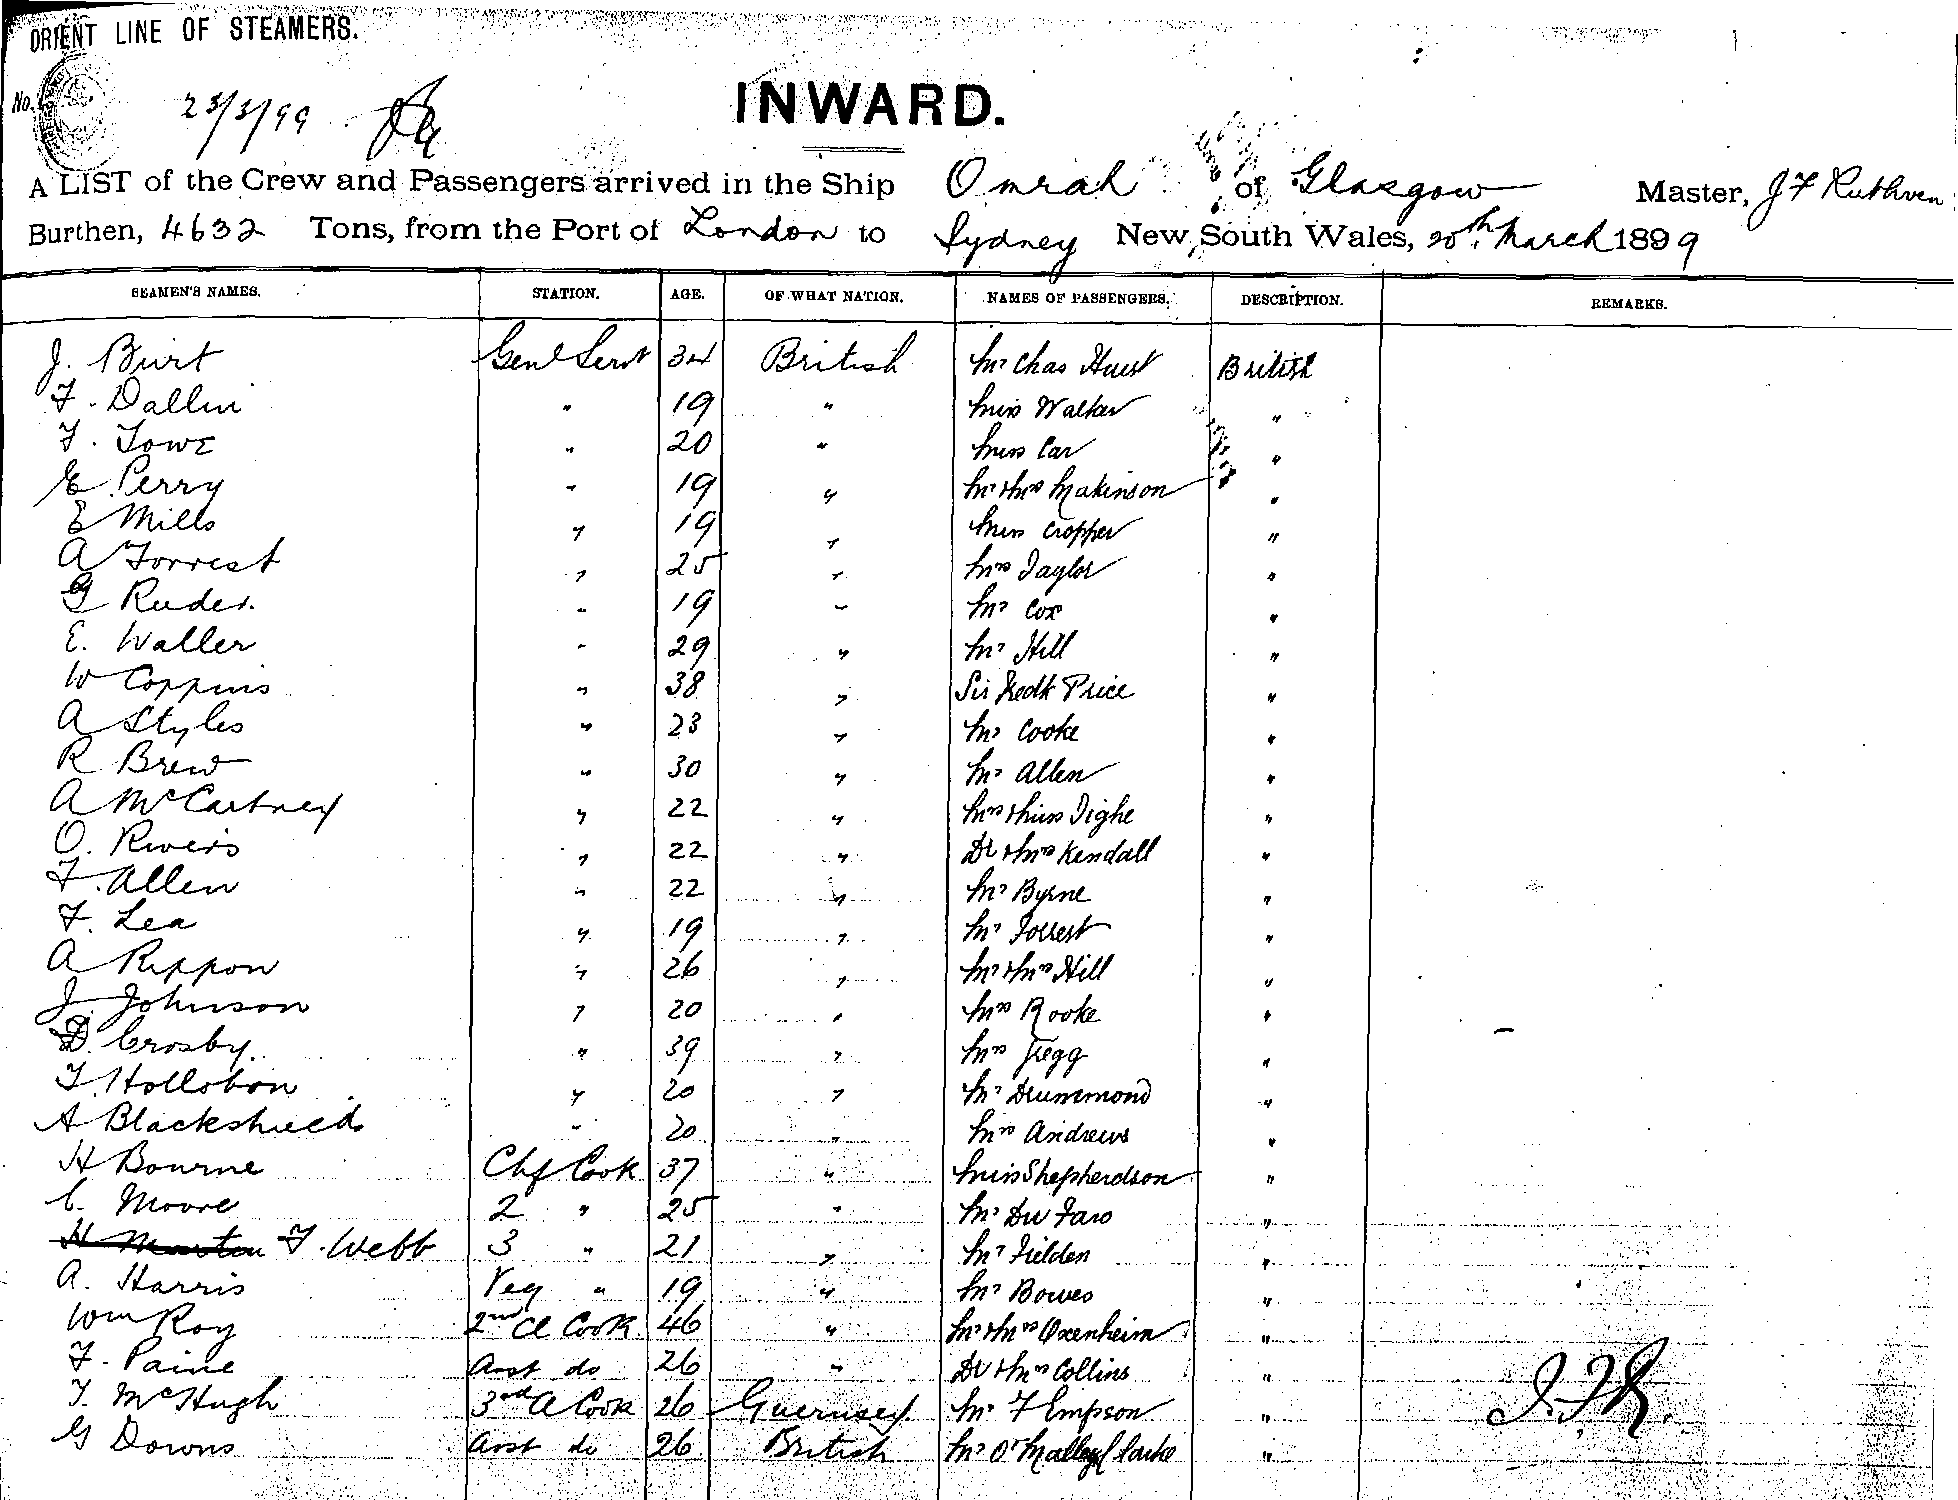 ORIENT LINE OF STEAMERS.
No.
23/3/99
INWARD.
A LIST of the Crew and Passengers arrived in the Ship Omrah of Glasgow Master, J F Ruthven
Burthen, 4632 Tons, from the Port of London to Sydney New South Wales, 20th March 1899
SEAMEN'S NAMES. STATION. AGE. OF WHAT NATION. NAMES OF PASSENGERS. DESCRIPTION. REMARKS.
J. Burt Genl Servt 34 British Mr Chas Hurst British
F. Dallin " 19 " Miss Walker "
F. Towe " 20 " Miss Car "
E. Perry " 19 " Mr & Mrs Makinson "
E Mills " 19 " Miss Cropper "
A Forrest " 25 " Mrs Taylor "
G Ruder. " 19 " Mr Cox "
E. Waller " 29 " Mr Hill "
W Coppins " 38 " Sir Fredk Price "
A Styles " 23 " Mr Cooke "
R Brew " 30 " Mr Allen "
A McCartney " 22 " Mrs & Miss Tighe "
O. Rivers " 22 " Dr & Mrs Kendall "
F. Allen " 22 " Mr Byrne "
F. Lea " 19 " Mr Forrest "
A Rippon " 26 " Mr & Mrs Hill "
J. Johnson " 20 " Mrs Rooke "
D. Crosby. " 39 " Mrs Tregg "
T. Hollobon " 20 " Mr Drummond "
A Blackshields " 20 " Mrs Andrews "
H Bourne Chf Cook 37 " Miss Shepherdson "
C. Moore 2 " 25 " Mr Du Faur "
H Morton F. Webb 3 " 21 " Mr Fielden "
A. Harris Veg " 19 " Mr Bowes "
Wm Roy 2nd Cl Cook 46 " Mr & Mrs Oxenheim "
F. Paine Asst do 26 " Dr & Mrs Collins "
T. McHugh 3rd Cl Cook 26 Guernsey. Mr F Empson "
G Downs Asst do 26 British Mr O'Malley Clarke "
J.F.R.